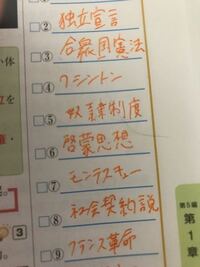 ② 独立宣言
③ 合衆国憲法
④ ワシントン
⑤ 奴隷制度
⑥ 啓蒙思想
⑦ モンテスキュー
⑧ 社会契約説
⑨ フランス革命
い体
を
3
第5編
第1章